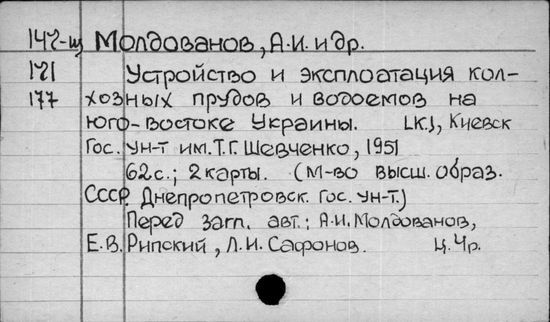 147-щ Молдованов, А.И. и др.
171 Устройство и эксплоатация кол-
177 хозных прудов и водоемов на
юго-востоке Украины. [К.], Киевск
Гос. ун-т им. Т.Г. Шевченко, 1951
62 с.; 2 карты. (М-во высш. образ.
СССР. Днепропетровск. Гос. ун-т.)
Перед загл. авт.: А.И. Молдованов,
Е.В. Рипский, Л.И. Сафонов. Ц. 4р.